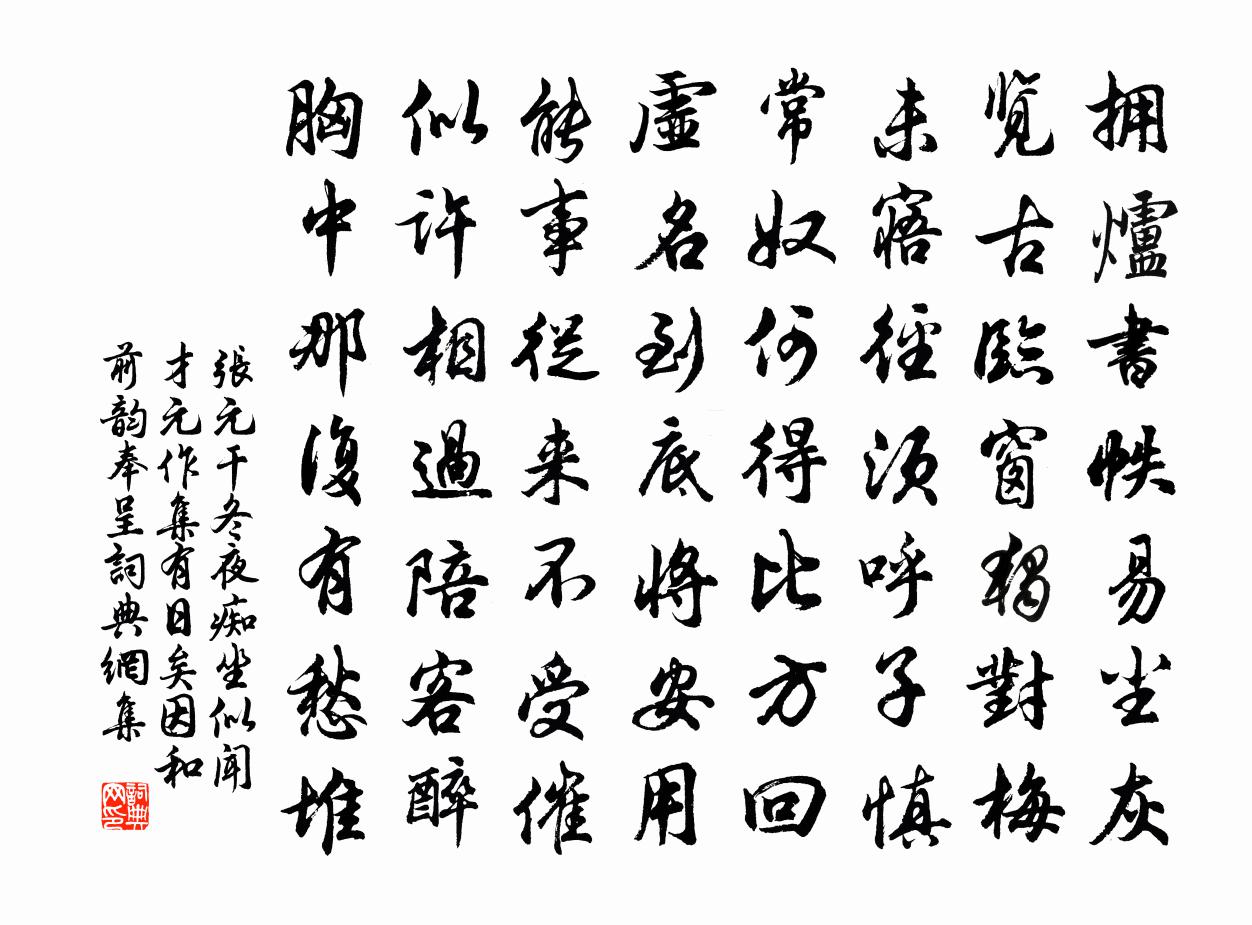 拥爐書帙易尘灰
览古臨窗獨對梅
未寤徑須呼子慎
常奴何得比方回
虛名到底將安用
能事從来不受催
似許相過陪客醉
胸中那復有愁堆
張元干冬夜痴坐似闻
才元作集有日矣因和
前韵奉呈詞典網集
詞典
网印